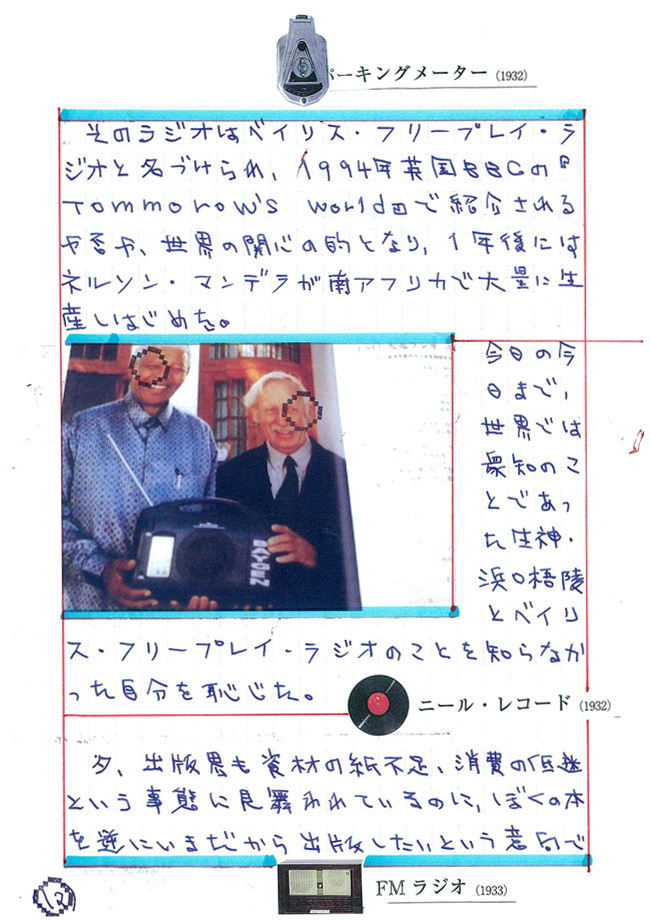 パーキングメーター (1932)
そのラジオはベイリス・フリープレイ・ラ
ジオと名づけられ、1994年英国BBCの『
Tommorow's world』で紹介される
や否や、世界の関心の的となり、1年後には
ネルソン・マンデラが南アフリカで大量に生
産しはじめた。
今日の今
日まで、
世界では
衆知のこ
とであっ
た生神・
浜口梧陵
とベイリ
BAYGEN
ス・フリープレイ・ラジオのことを知らなか
った自分を恥じた。
ニール・レコード (1932)
夕、出版界も資材の紙不足、消費の低迷
という事態に見舞われているのに、ぼくの本
を逆にいまだから出版したいという意向で
FMラジオ (1933)
12